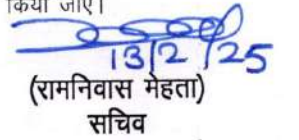 किया जाए।
13/2/25
(रामनिवास मेहता)
सचिव